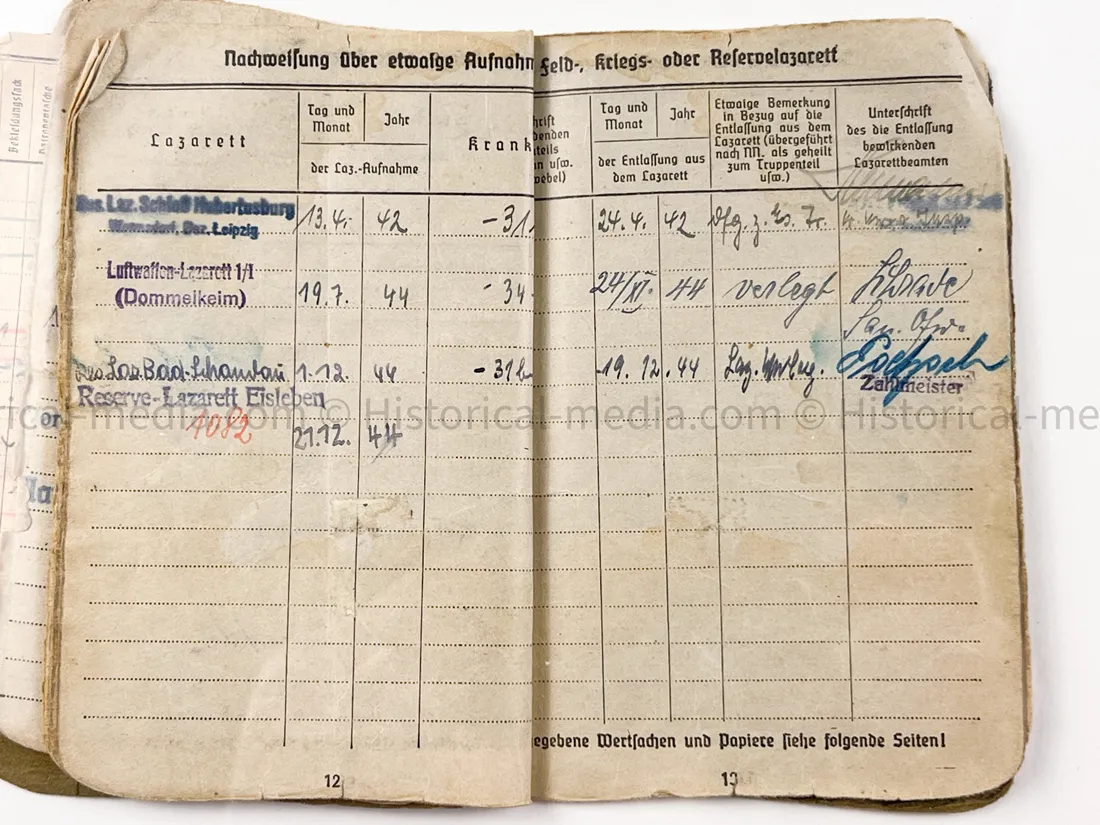 Nachweisung über etwaige Aufnahm Feld-, Kriegs- oder Reservelazarett
Lazarett
Tag und Monat
Jahr
der Laz.-Aufnahme
Krank
hrift
enden
teils
n usw.
ebel)
Tag und Monat
Jahr
der Entlassung aus dem Lazarett
Etwaige Bemerkung
in Bezug auf die
Entlassung aus dem
Lazarett (übergeführt
nach NN. als geheilt
zum Truppenteil
usw.)
Unterschrift
des die Entlassung
bewirkenden
Lazarettbeamten
Res. Laz. Schloß Hubertusburg
Wermsdorf, Bez. Leipzig
13.4. 42 -31 24.4. 42
Luftwaffen-Lazarett 1/I
(Dommelkeim)
19.7. 44 -34 24/XI. 44 verlegt
Res Laz Bad Schandau 1.12. 44 -31 19.12.44 Laz.
Zahlmeister
Reserve-Lazarett Eisleben
1082
21.12. 44
Historical-media.com © Historical-media.com © Historical-me
egebene Wertsachen und Papiere siehe folgende Seiten!
12
13
Bekleidungsstück